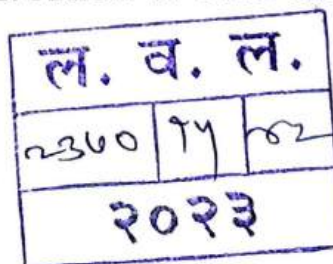 ल. व. ल.
२३७० १५
२०२३